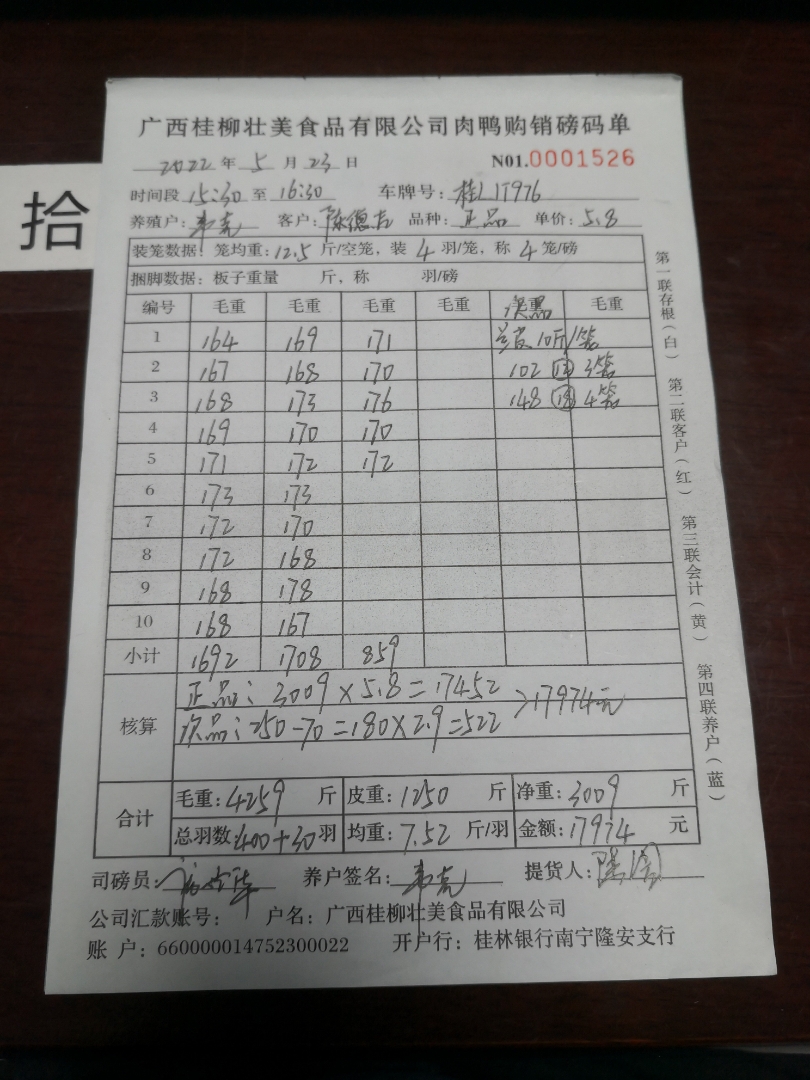 广西桂柳壮美食品有限公司肉鸭购销磅码单
2022 年 5 月 23 日 N01.0001526
拾
时间段 15:30 至 16:30 车牌号:桂L1T976
养殖户: 客户:陈德志 品种:正品 单价:5.8
装笼数据:笼均重:12.5 斤/空笼,装 4 羽/笼,称 4 笼/磅
捆脚数据:板子重量 斤,称 羽/磅
编号 毛重 毛重 毛重 毛重 毛重
1 164 169 171 10斤/笼
2 167 168 170 102 3笼
3 168 173 176 148 4笼
4 169 170 170
5 171 172 172
6 173 173
7 172 170
8 172 168
9 168 178
10 168 167
小计 1692 1708 859
核算
正品:3009×5.8=17452
次品:250-70=180×2.9=522 >17974元
合计
毛重:4259 斤 皮重:1250 斤 净重:3009 斤
总羽数:400+30羽 均重:7.52 斤/羽 金额:17974 元
司磅员: 养户签名: 提货人:
公司汇款账号: 户名:广西桂柳壮美食品有限公司
账 户:660000014752300022 开户行:桂林银行南宁隆安支行
第一联存根(白) 第二联客户(红) 第三联会计(黄) 第四联养户(蓝)